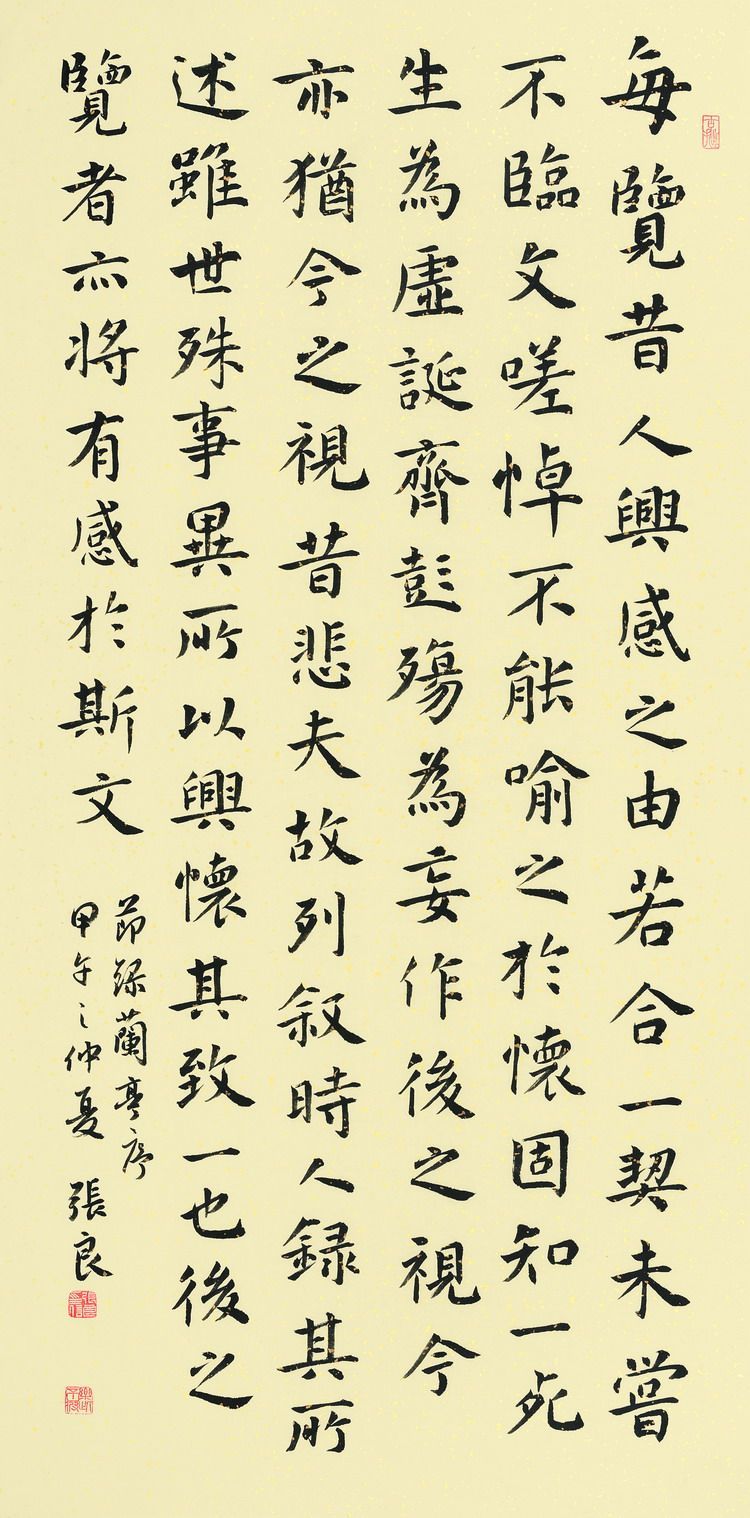 每覽昔人興感之由若合一契未嘗
不臨文嗟悼不能喻之於懷固知一死
生為虛誕齊彭殤為妄作後之視今
亦猶今之視昔悲夫故列叙時人録其所
述雖世殊事異所以興懷其致一也後之
覽者亦將有感於斯文
節錄蘭亭序
甲午之仲夏 張良